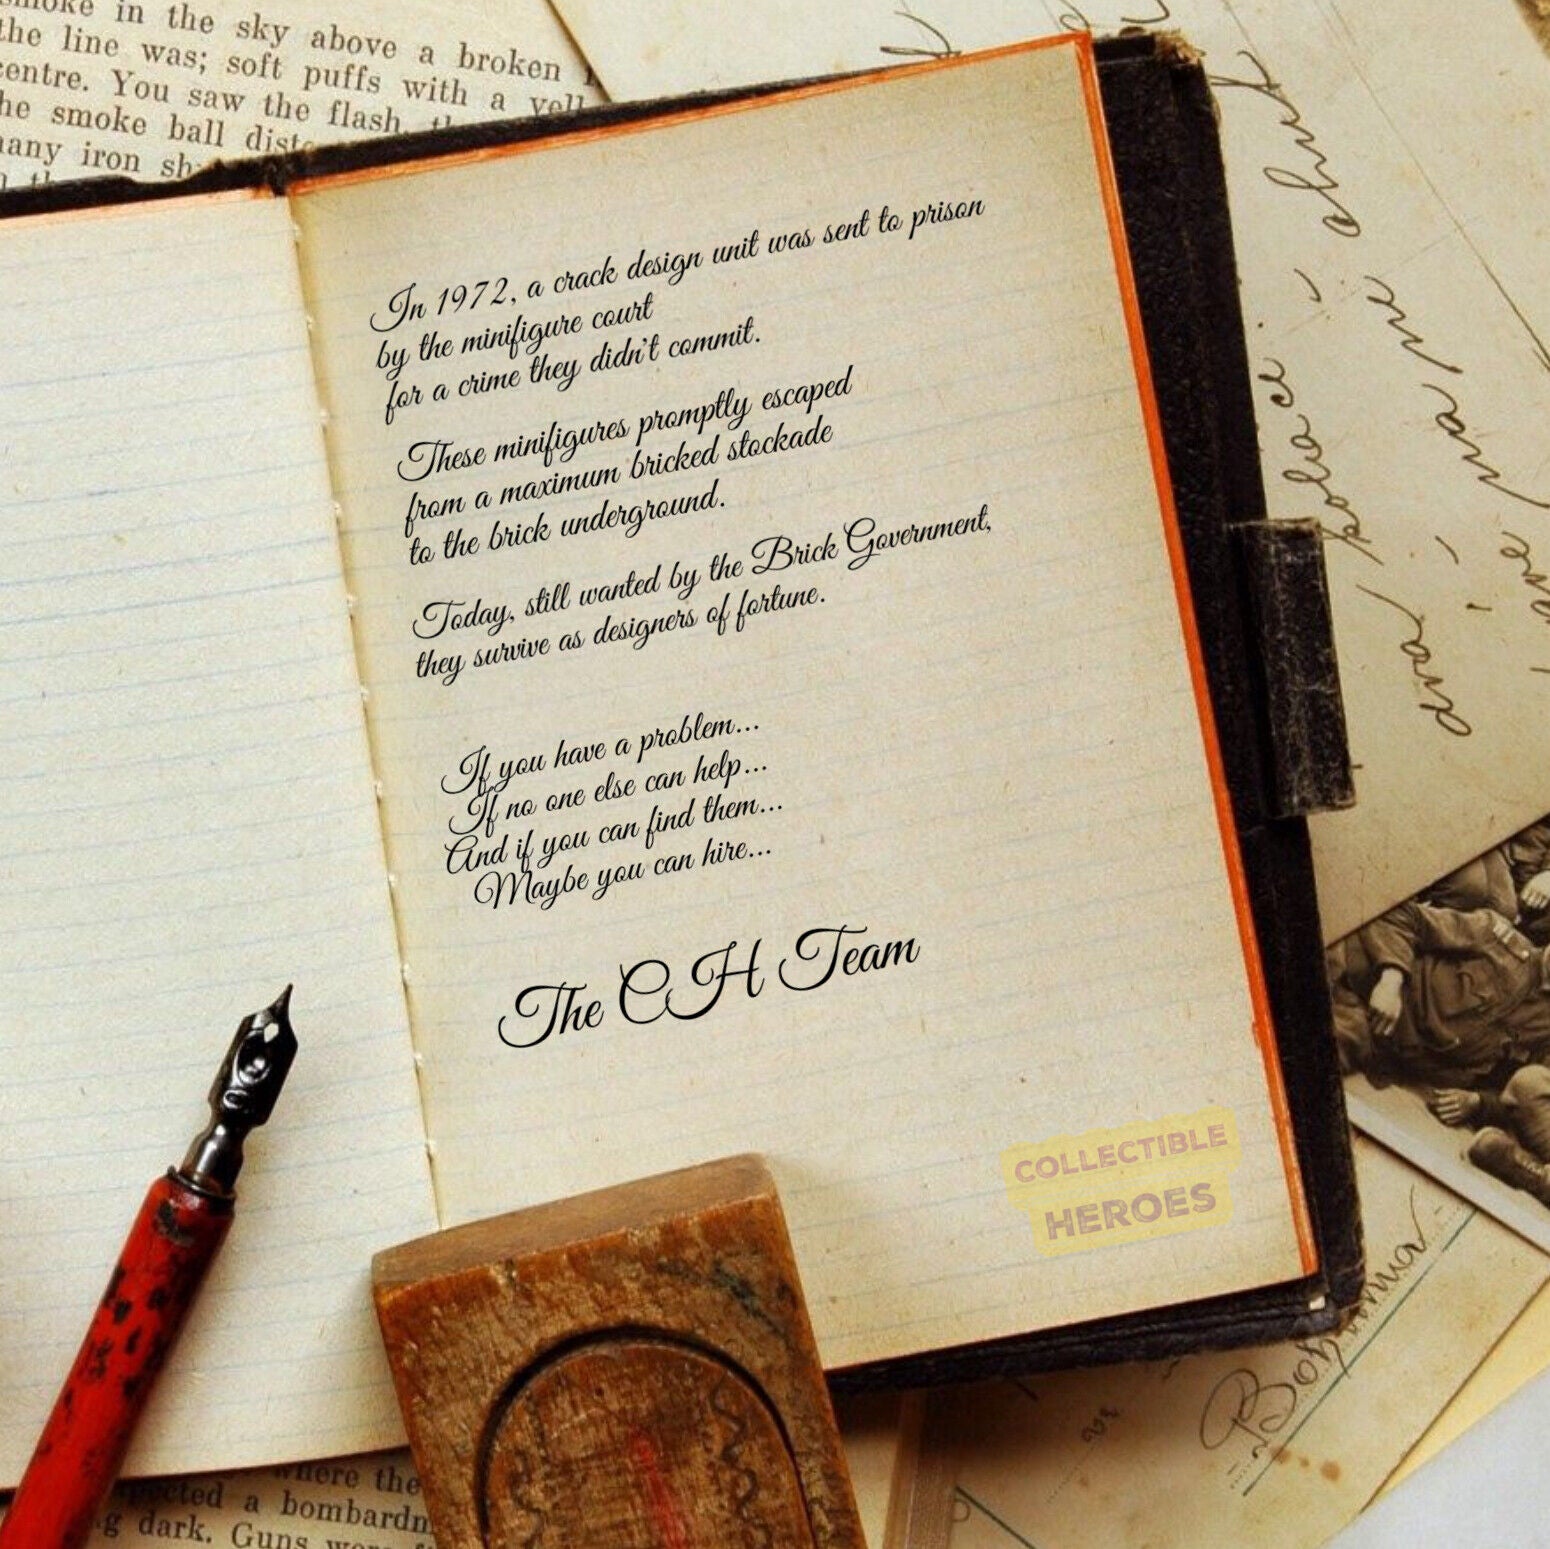 smoke in the sky above a broken
the line was; soft puffs with a yell
centre. You saw the flash,
he smoke ball
many iron
In 1972, a crack design unit was sent to prison
by the minifigure court
for a crime they didn't commit.
These minifigures promptly escaped
from a maximum bricked stockade
to the brick underground.
Today, still wanted by the Brick Government,
they survive as designers of fortune.
If you have a problem...
If no one else can help...
And if you can find them...
Maybe you can hire...
The CH Team
COLLECTIBLE
HEROES
where the
a bombardm
dark. Guns